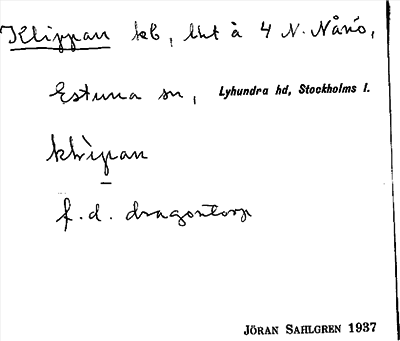 Klippan kb, lht à 4 N. Nånö,
Estuna sn, Lyhundra hd, Stockholms l.
klìpan
f. d. dragontorp
JÖRAN SAHLGREN 1937